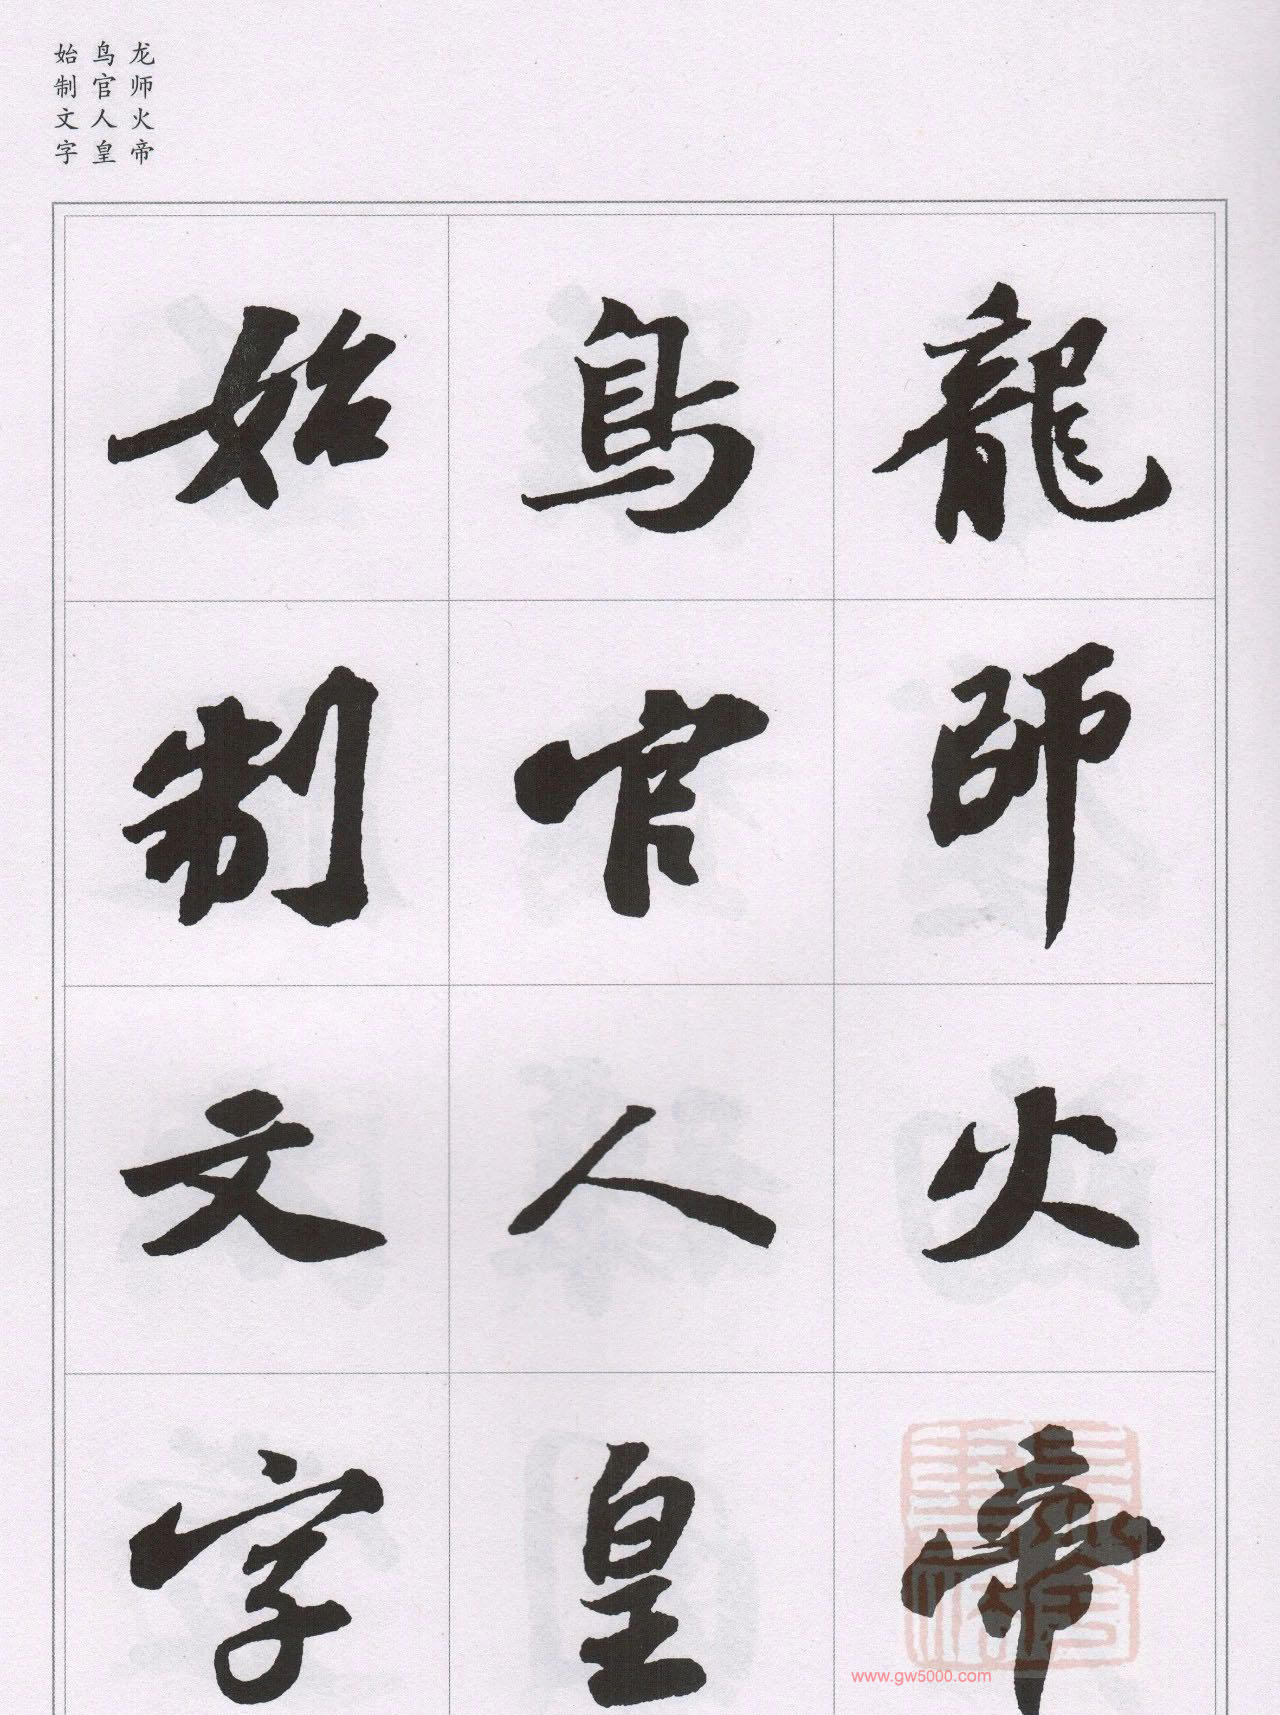 龙师火帝
鸟官人皇
始制文字
龍師火帝
鳥官人皇
始制文字
www.gw5000.com